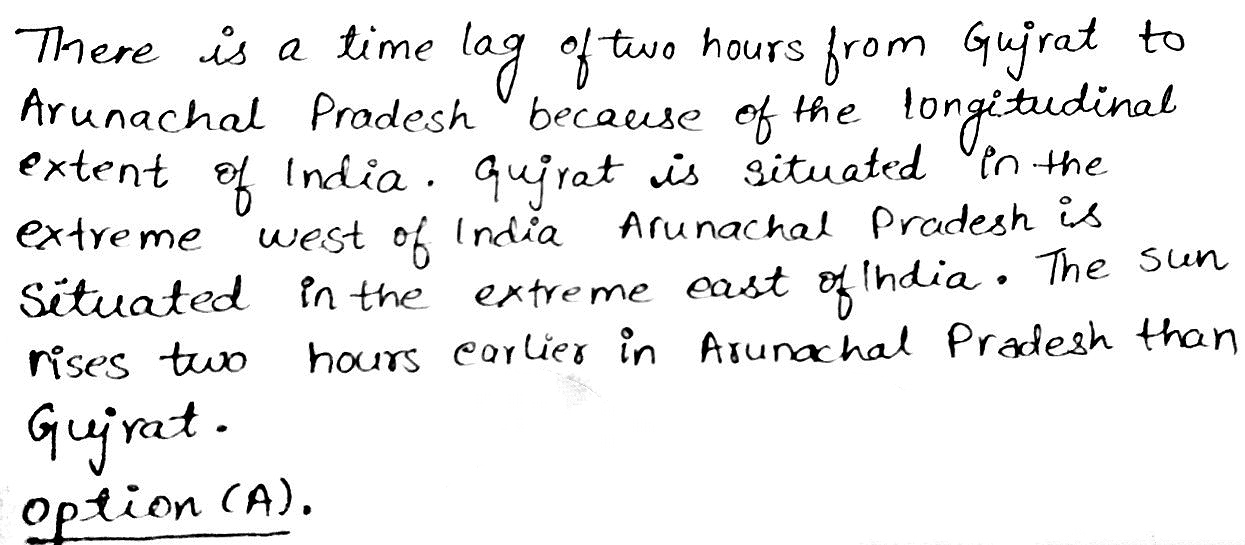 There is a time lag of two hours from Gujrat to
Arunachal Pradesh because of the longitudinal
extent of India. Gujrat is situated in the
extreme west of India Arunachal Pradesh is
situated in the extreme east of India. The sun
rises two hours earlier in Arunachal Pradesh than
Gujrat.
option (A).